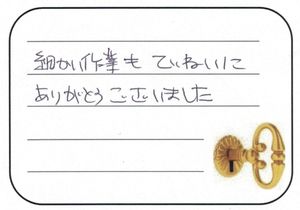 細かい作業も ていねいに
ありがとうございました